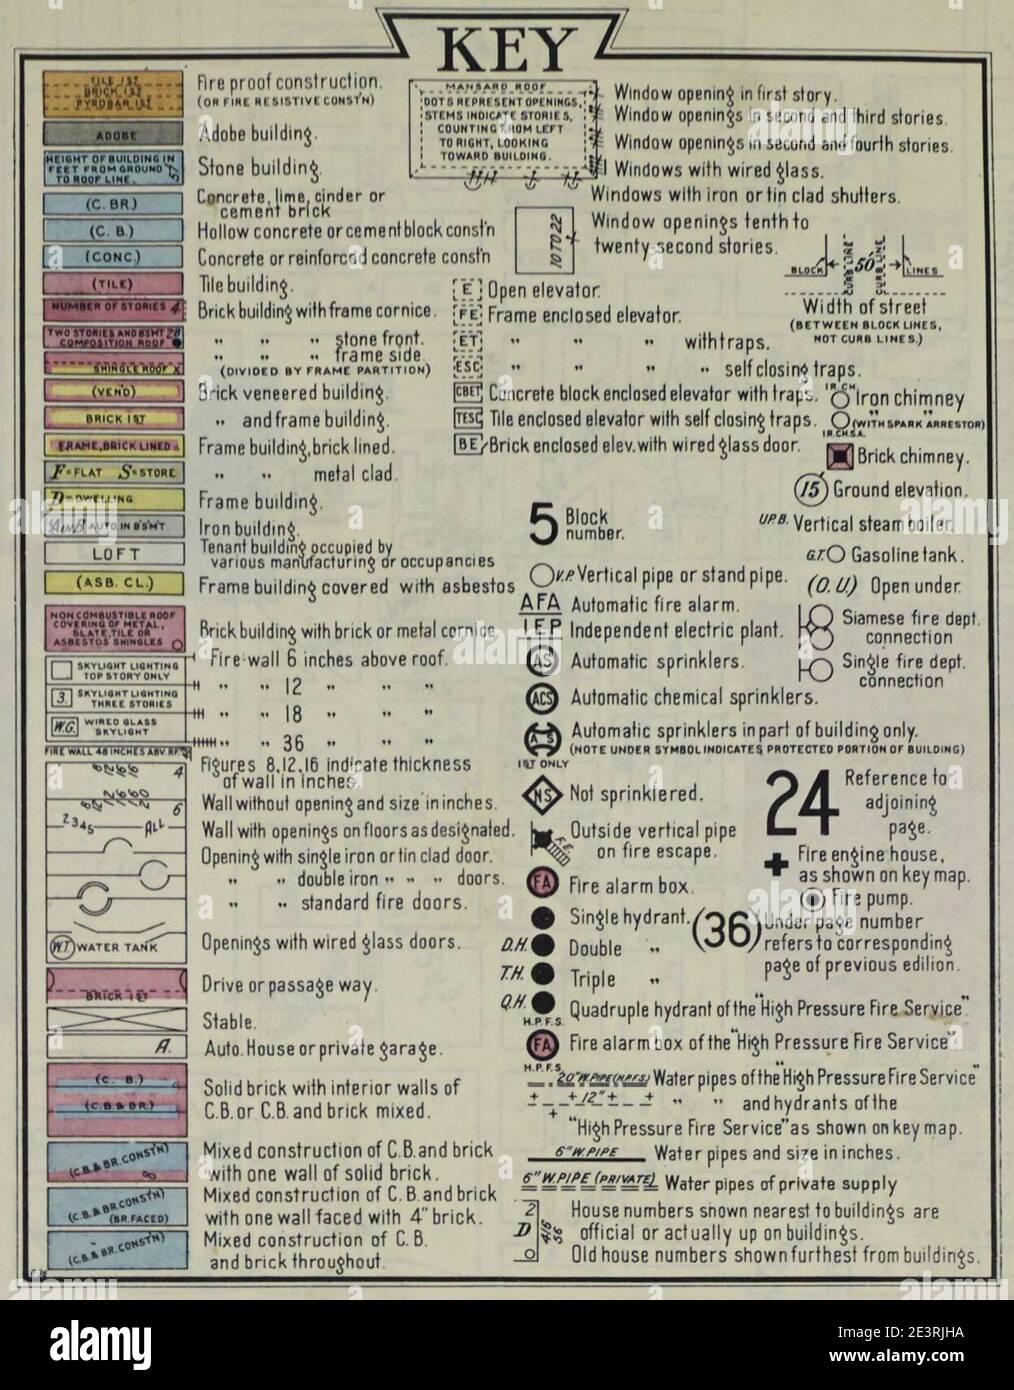 KEY
TILE 1ST
BRICK 1ST
PYROBAR 1ST
Fire proof construction.
(OR FIRE RESISTIVE CONST'N)
ADOBE
Adobe building.
HEIGHT OF BUILDING IN
FEET FROM GROUND
TO ROOF LINE.
57
Stone building.
(C. BR.)
Concrete, lime, cinder or
cement brick
(C. B.)
Hollow concrete or cement block const'n
(CONC.)
Concrete or reinforced concrete const'n
(TILE)
Tile building.
NUMBER OF STORIES 4
Brick building with frame cornice.
TWO STORIES AND BSMT 2B
COMPOSITION ROOF
" " " stone front.
" " " frame side.
(DIVIDED BY FRAME PARTITION)
SHINGLE ROOF X
(VEN'D)
Brick veneered building.
BRICK 1ST
" and frame building.
FRAME, BRICK LINED
Frame building, brick lined.
F=FLAT S=STORE
" " metal clad.
D=DWELLING
Frame building.
AUTO. IN B'S'M'T
Iron building.
LOFT
Tenant building occupied by
various manufacturing or occupancies
(ASB. CL.)
Frame building covered with asbestos
NON COMBUSTIBLE ROOF
COVERING OF METAL,
SLATE, TILE OR
ASBESTOS SHINGLES
Brick building with brick or metal cornice
SKYLIGHT LIGHTING
TOP STORY ONLY
Fire wall 6 inches above roof.
3.
SKYLIGHT LIGHTING
THREE STORIES
" " 12 " " "
W.G.
WIRED GLASS
SKYLIGHT
" " 18 " " "
" " 36 " " "
FIRE WALL 48 INCHES ABV. RF.
Figures 8, 12, 16 indicate thickness
of wall in inches.
4
Wall without opening and size in inches.
6
2345 ALL
Wall with openings on floors as designated.
Opening with single iron or tin clad door.
" " double iron " " " doors.
" " standard fire doors.
W.T. WATER TANK
Openings with wired glass doors.
BRICK 1ST
Drive or passage way.
Stable.
A.
Auto. House or private garage.
(C. B.)
(C.B.& BR.)
Solid brick with interior walls of
C.B. or C.B. and brick mixed.
(C.B.& BR.CONST'N)
8
Mixed construction of C.B. and brick
with one wall of solid brick.
(C.B.& BR.CONST'N)
(BR. FACED)
Mixed construction of C.B. and brick
with one wall faced with 4" brick.
(C.B.& BR.CONST'N)
Mixed construction of C.B.
and brick throughout.
MANSARD ROOF
DOTS REPRESENT OPENINGS,
STEMS INDICATE STORIES,
COUNTING FROM LEFT
TO RIGHT, LOOKING
TOWARD BUILDING.
Window opening in first story.
Window openings in second and third stories.
Window openings in second and fourth stories.
Windows with wired glass.
Windows with iron or tin clad shutters.
10 TO 22
Window openings tenth to
twenty-second stories.
BLOCK LINES
CURB LINE
50'
CURB LINE
Width of street
(BETWEEN BLOCK LINES,
NOT CURB LINES.)
E
Open elevator.
FE
Frame enclosed elevator.
ET
" " " with traps.
ESC
" " " self closing traps.
CBET
Concrete block enclosed elevator with traps.
TESC
Tile enclosed elevator with self closing traps.
BE
Brick enclosed elev. with wired glass door.
IR. CH.
Iron chimney
" "
(WITH SPARK ARRESTOR)
IR.CH.S.A.
Brick chimney.
15
Ground elevation.
5
Block
number.
U.P.B. Vertical steam boiler.
G.T. Gasoline tank.
V.P. Vertical pipe or stand pipe.
(O. U.) Open under.
AFA Automatic fire alarm.
IEP Independent electric plant.
Siamese fire dept.
connection
AS Automatic sprinklers.
Single fire dept.
connection
ACS Automatic chemical sprinklers.
A S
1ST ONLY
Automatic sprinklers in part of building only.
(NOTE UNDER SYMBOL INDICATES PROTECTED PORTION OF BUILDING)
NS Not sprinklered.
24
Reference to
adjoining
page.
F.E.
Outside vertical pipe
on fire escape.
Fire engine house,
as shown on key map.
FA Fire alarm box.
Fire pump.
Single hydrant.
(36)
Under page number
refers to corresponding
page of previous edition.
D.H. Double "
T.H. Triple "
Q.H. Quadruple hydrant of the "High Pressure Fire Service"
H.P.F.S.
FA Fire alarm box of the "High Pressure Fire Service"
H.P.F.S.
20" W.PIPE (H.P.F.S.) Water pipes of the "High Pressure Fire Service"
12" " " and hydrants of the
"High Pressure Fire Service" as shown on key map.
6" W.PIPE Water pipes and size in inches.
6" W.PIPE (PRIVATE) Water pipes of private supply
2
D
House numbers shown nearest to buildings are
official or actually up on buildings.
Old house numbers shown furthest from buildings.
alamy
Image ID: 2E3RJHA
www.alamy.com